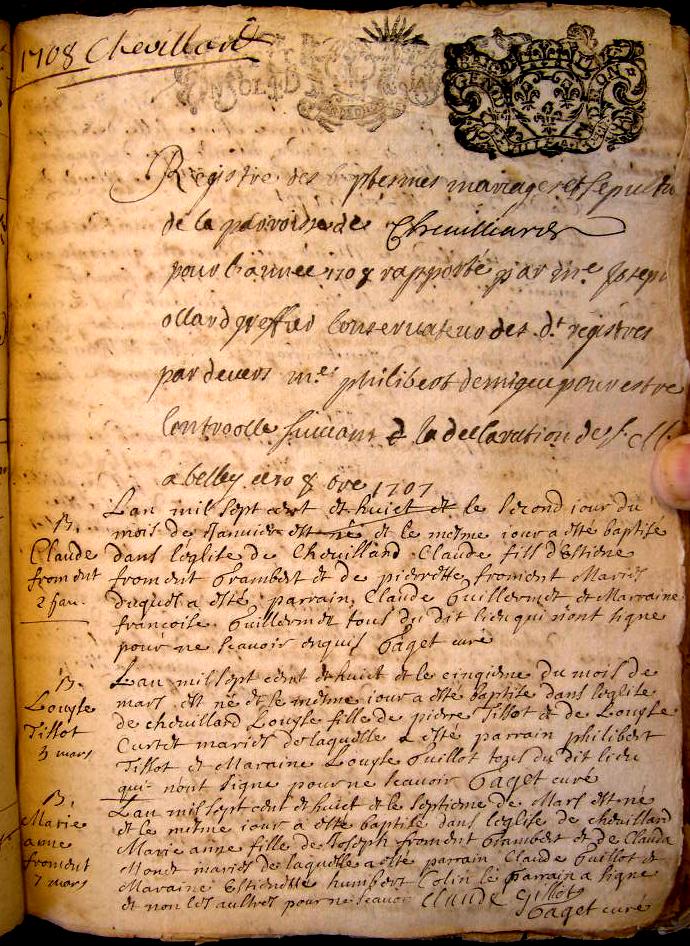 1708 Chevillard
GEN DE
Registre des baptesmes mariages et sepultu
de la parroisse de Chevilliard
pour l'année 1708 rapporté par me Josep
ollard greffier Conservateur des dt registres
par devers me philibert demique pour estre
Controolle suivant la declaration de s. M.
a belley ce 10 8bre 1707
Lan mil sept cent et huict et le second jour du
mois de Janvier est né et le mesme jour a esté baptise
dans leglise de Chevillard Claude fils d'Estiene
froment Grambert et de pierrette froment Mariés
duquel a esté parrain Claude Guillermet et Marraine
francoise Guillermet tous du dit lieu qui n'ont signe
pour ne scavoir enquis Gaget curé
B.
Claude
froment
2 Janv.
Lan mil sept cent et huict et le cinqieme du mois de
mars est né et le mesme jour a esté baptise dans leglise
de chevillard Louyse fille de pierre Tillot et de Louyse
Curtet mariés de laquelle a esté parrain philibert
Tillot et Maraine Louyse Guillot tous du dit lieu
qui n'ont signe pour ne scavoir Gaget curé
B.
Louyse
Tillot
5 mars
Lan mil sept cent et huict et le septieme de Mars est né
et le mesme jour a esté baptise dans leglise de chevillard
Marie anne fille de Joseph froment Grambert et de Clauda
Monet mariés de laquelle a esté parrain Claude Guillot et
Maraine Estienette humbert Colin le parrain a signe
et non les aultres pour ne scavoir Claude Gillot
Gaget curé
B.
Marie
anne
froment
7 mars